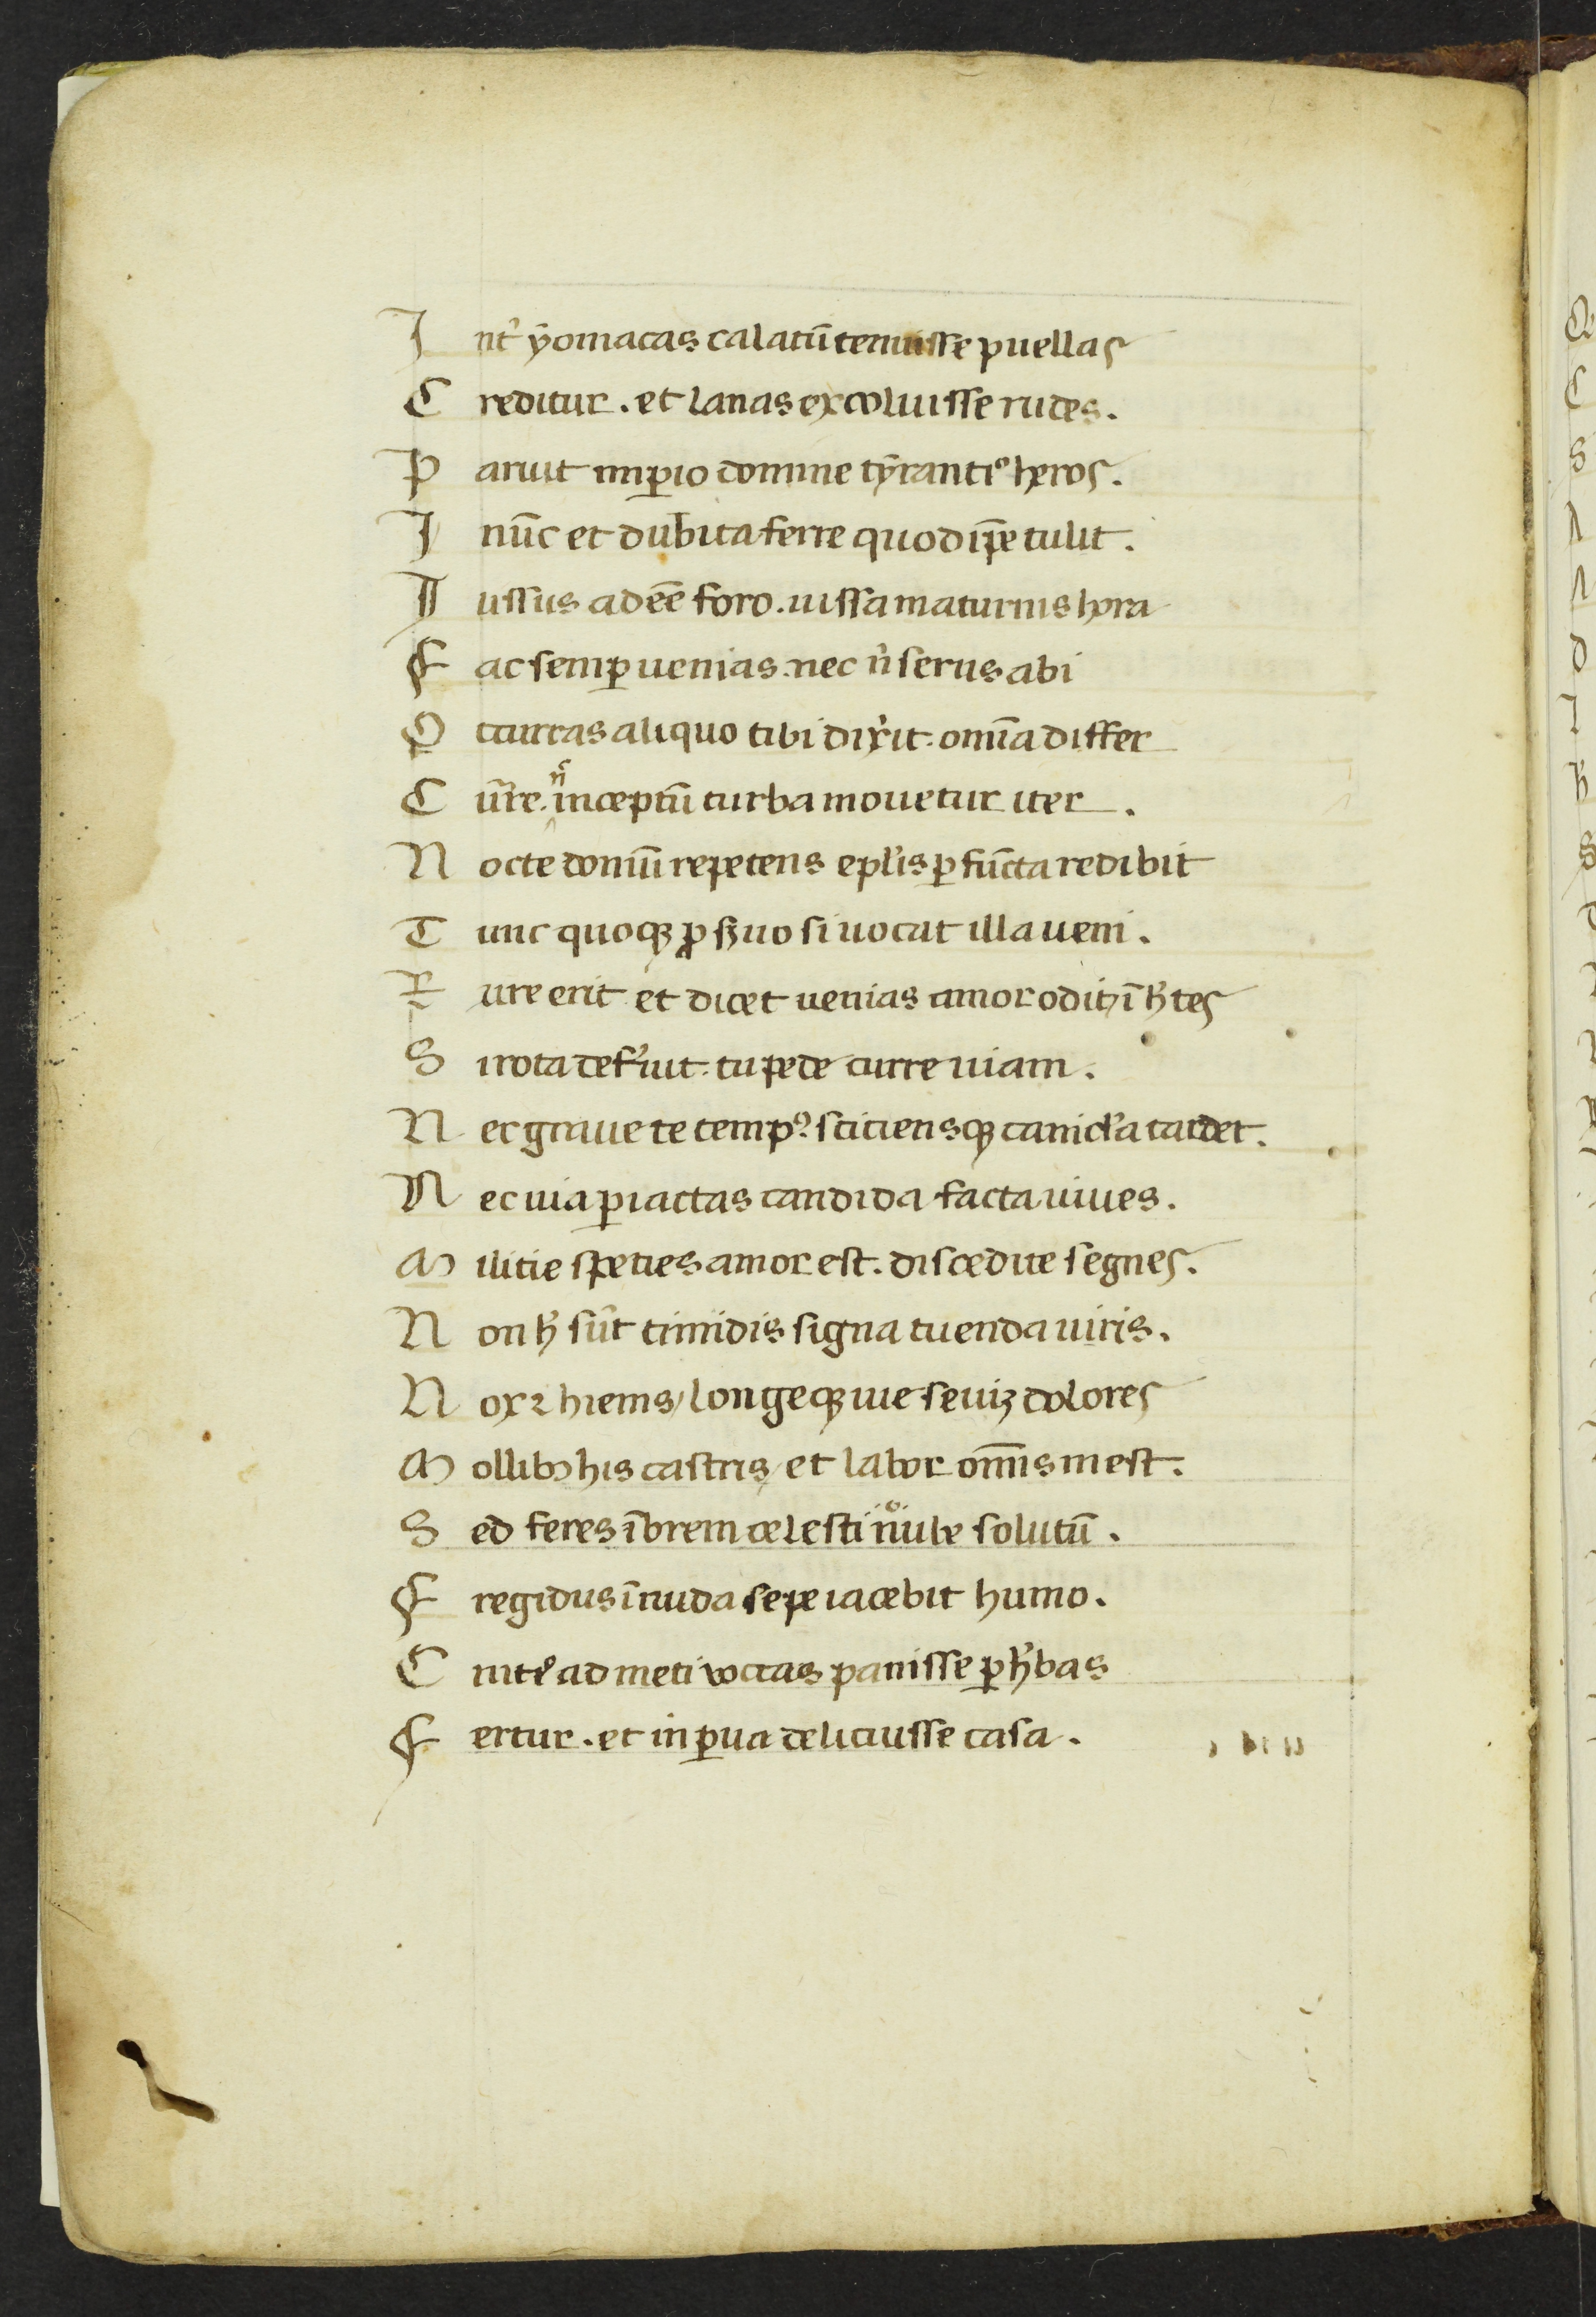 I nt᾽ ẏomacas calatū tenuisse puellas
C reditur . et lanas excoluisse rudes .
P aruit imꝑio domine tẏrantiꝰ heros .
I nūc et dubita ferre quod ip̄e tulit .
I ussus adeē foro . iussa maturius hora
F ac semꝑ uenias . nec n̄ serus abi
O ccurras aliquo tibi dix᾽it . om̄ia differ
C ur̄re . n᾽ inceptū turba mouetur iter .
N octe domū repetens epl᾽is ꝑfūcta redibit
T unc quoqꝫ ꝓ s᾽uo si uocat illa ueni .
R ure erit et dicet uenias amor oditꝫ īh᾽tes
S i rota def᾽iut . tu pede curre uiam .
N ec graue te tempꝰ . sitiensqꝫ canicl᾽a tardet .
N ec uia ꝑ iactas candida facta niues .
M ilitie speties amor est . discedite segnes .
N on h᾽ sūt timidis signa tuenda uiris .
N ox ⁊ hiems / longeqꝫ uie seuiꝫ dolores
M ollibꝫ his castris / et labor om̄is inest .
S ed feres ībrem celesti nube solutū .
F regidus ī nuda sepe iacebit humo .
C inte᾽ ad meti uaccas pauisse ꝑ h᾽bas
F ertur . et in ꝑua delituisse casa .